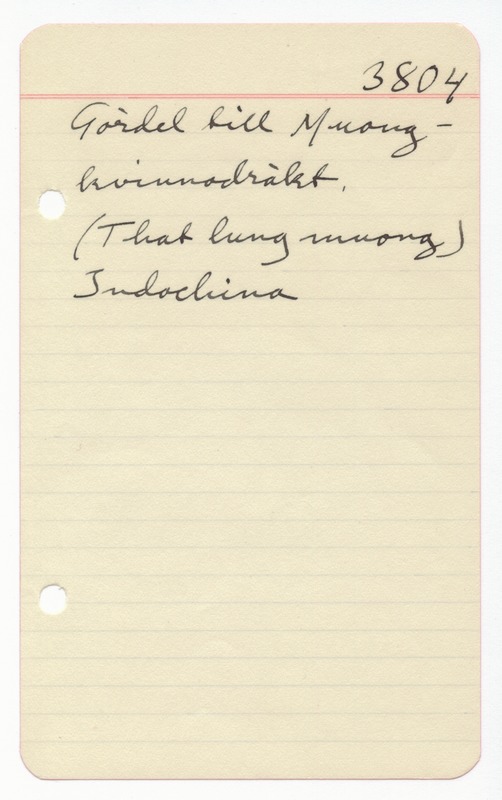 3804
Gördel till Muong-
kvinnodräkt.
(That lung muong)
Indochina